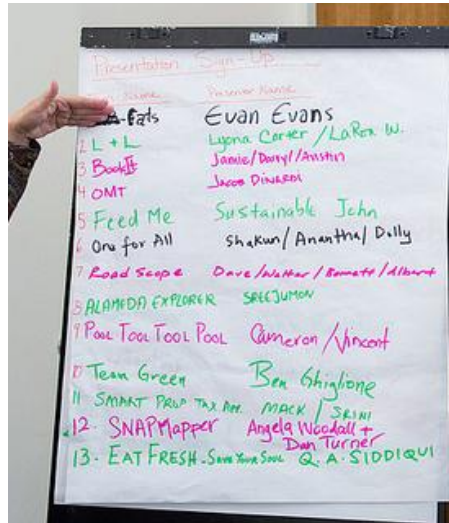 Presentation Sign-Up
Name Presenter Name
-Eats Evan Evans
2 L + L Lyona Carter / LaRea W.
3 BookIt Jamie/Darryl/Austin
4 OMT Jacob
5 Feed Me Sustainable John
6 One for All Shakun/Anantha/Dolly
7 Road Scope Dave/Walter/Bennett/Albert
8 ALAMEDA EXPLORER SREEJUMON
9 POOL TOOL TOOL POOL Cameron/Vincent
10 Team Green Ben Ghiglione
11 SMART PROP TAX APP. MACK / SRINI
12. SNAPMapper Angela Woodall +
Dan Turner
13- EAT FRESH-Save Your Soul Q.A.SIDDIQUI